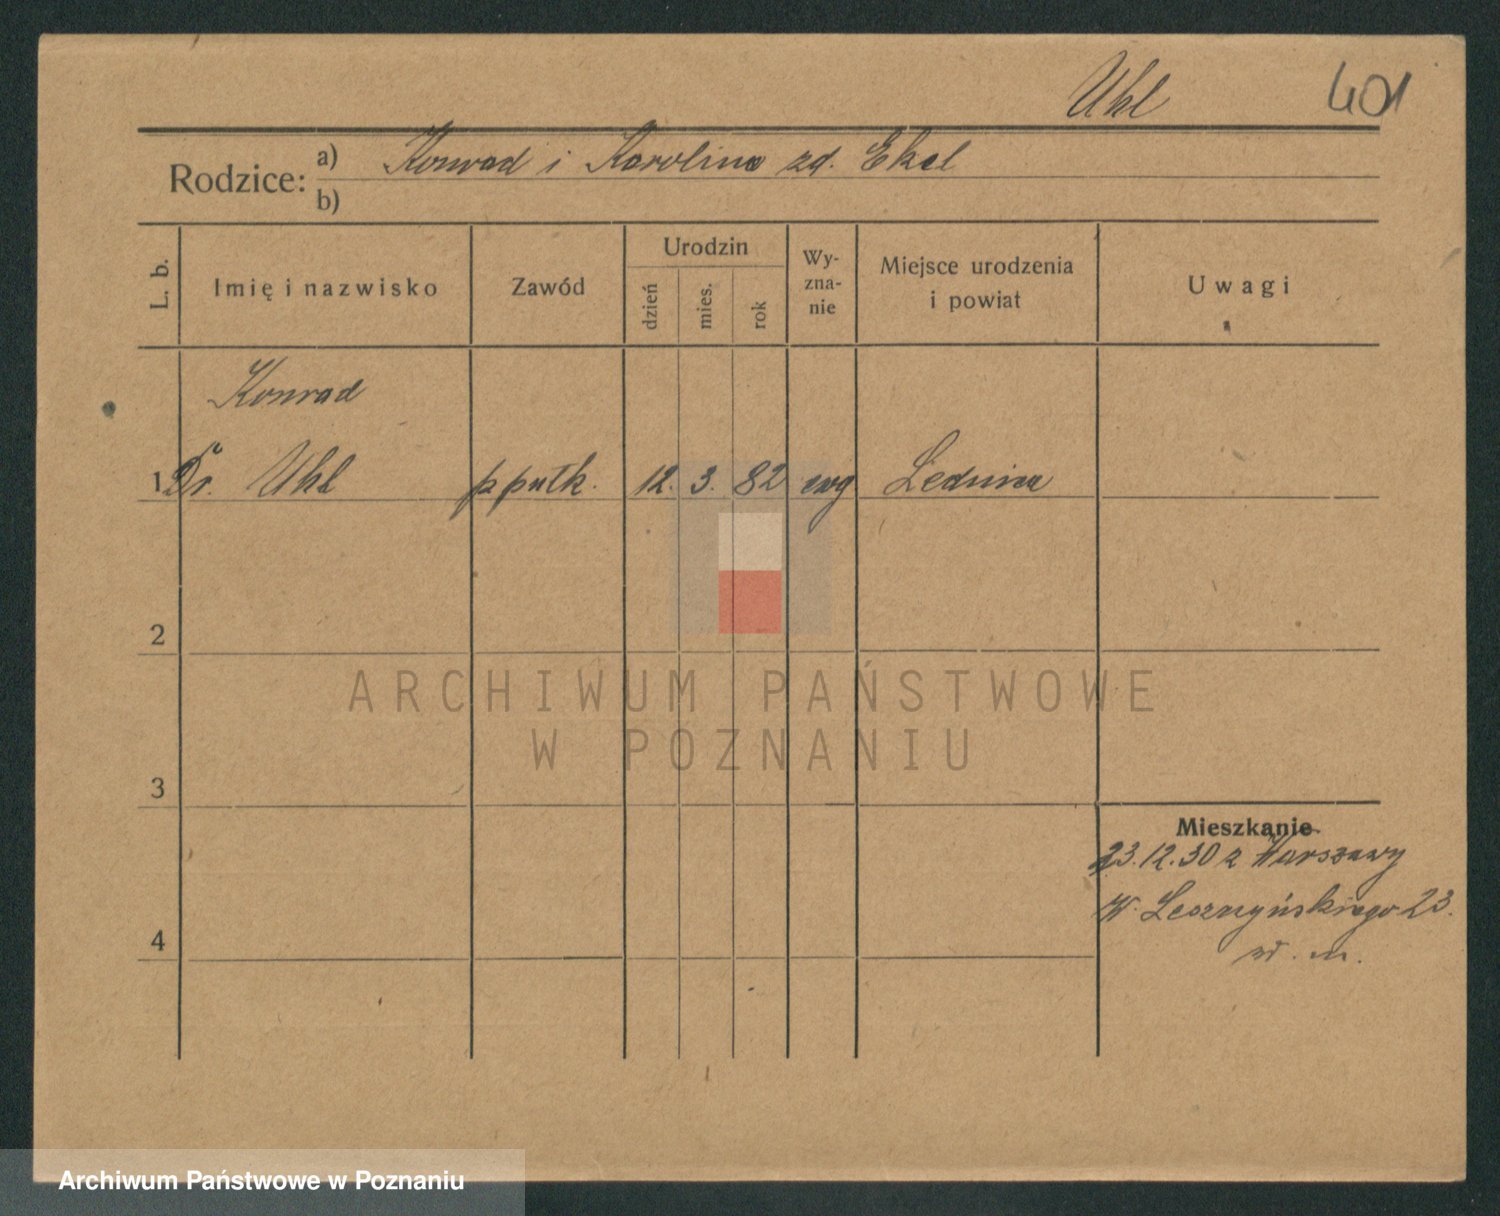 Uhl 401
Rodzice: a) Konrad i Karolina zd. Ekel
b)
L. b. Imię i nazwisko Zawód Urodzin dzień mies. rok Wyznanie Miejsce urodzenia i powiat Uwagi
Konrad
1 Dr. Uhl ppułk. 12. 3. 82 ewg Lednica
2
ARCHIWUM PAŃSTWOWE
W POZNANIU
3
Mieszkanie
23.12.30 z Warszawy
W. Leszczyńskiego 23.
4
Archiwum Państwowe w Poznaniu